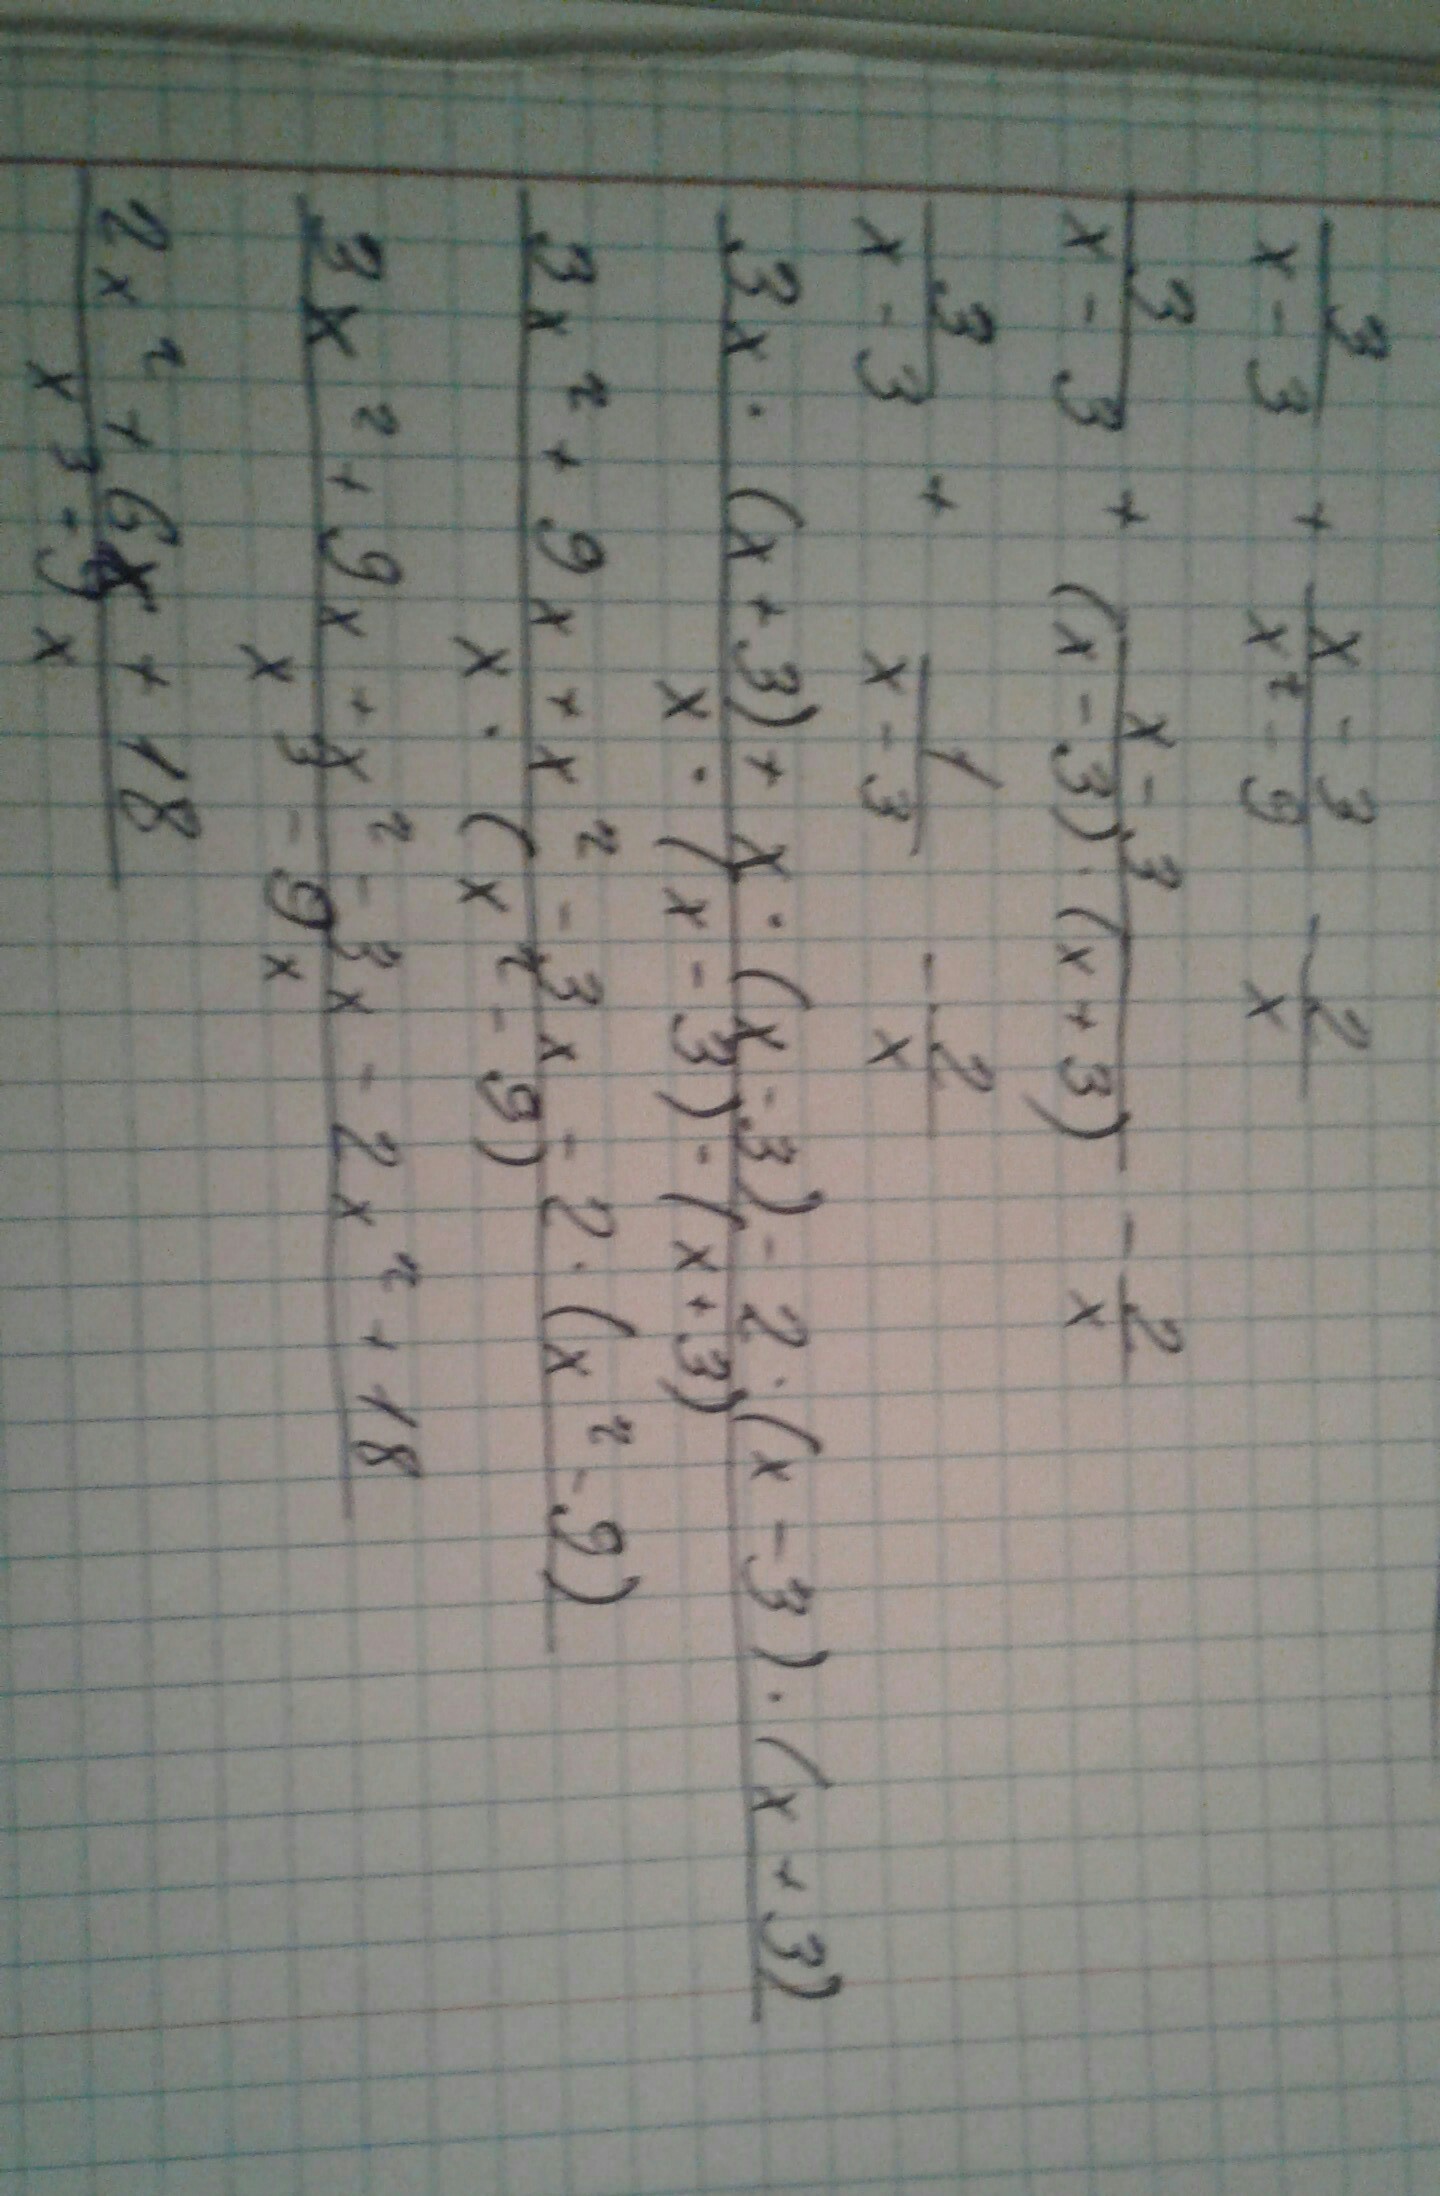 3/(x-3) + (x-3)/(x²-9) - 2/x
3/(x-3) + (x-3)/((x-3)·(x+3)) - 2/x
3/(x-3) + 1/(x-3) - 2/x
(3x·(x+3)+x·(x-3)-2·(x-3)·(x+3))/(x·(x-3)·(x+3))
(3x²+9x+x²-3x-2·(x²-9))/(x·(x²-9))
(3x²+9x+x²-3x-2x²+18)/(x³-9x)
(2x²+6x+18)/(x³-9x)